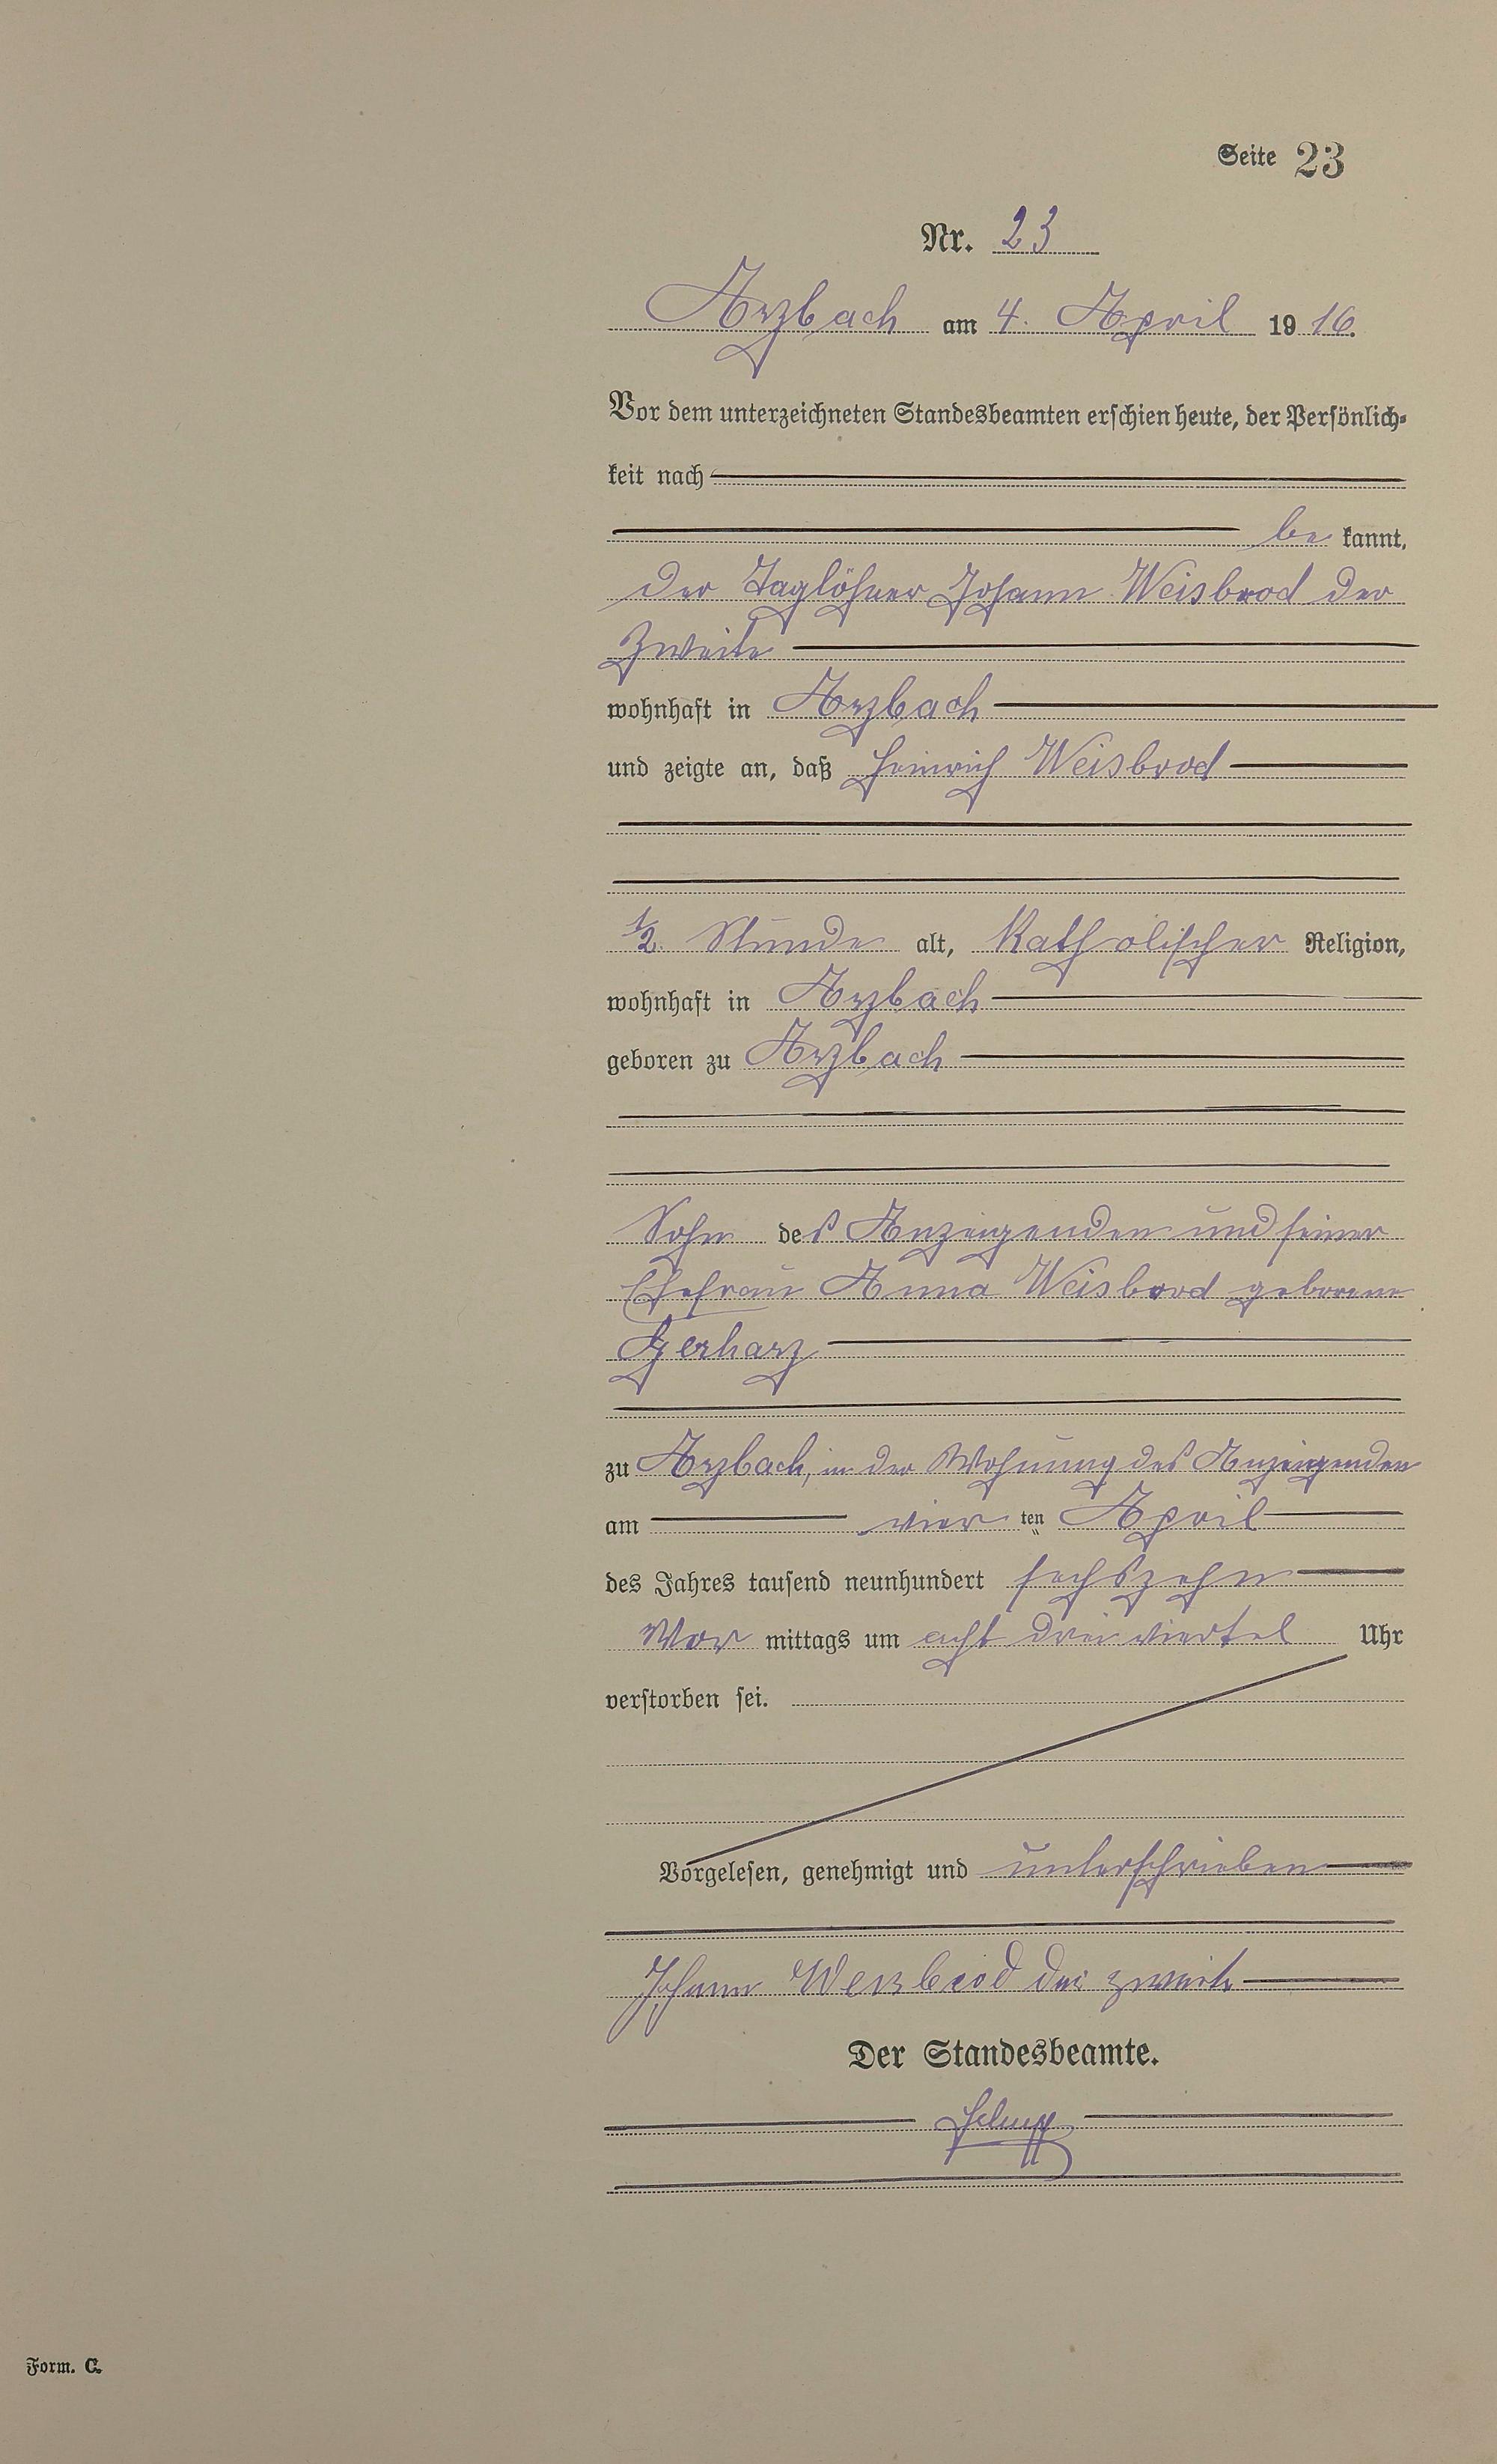 Seite 23
Nr. 23
Arzbach am 4. April 1916.
Vor dem unterzeichneten Standesbeamten erschien heute, der Persönlich-
keit nach
be kannt,
der Taglöhner Johann Weisbrod der
Zweite
wohnhaft in Arzbach
und zeigte an, daß Heinrich Weisbrod
1/2 Stunde alt, Katholischer Religion,
wohnhaft in Arzbach
geboren zu Arzbach
Sohn des Anzeigenden und seiner
Ehefrau Anna Weisbrod geborene
Gerharz
zu Arzbach, in der Wohnung des Anzeigenden
am vier ten April
des Jahres tausend neunhundert sechszehn
Vor mittags um acht drei viertel Uhr
verstorben sei.
Vorgelesen, genehmigt und unterschrieben
Johann Weisbrod der zweite
Der Standesbeamte.
Form. C.